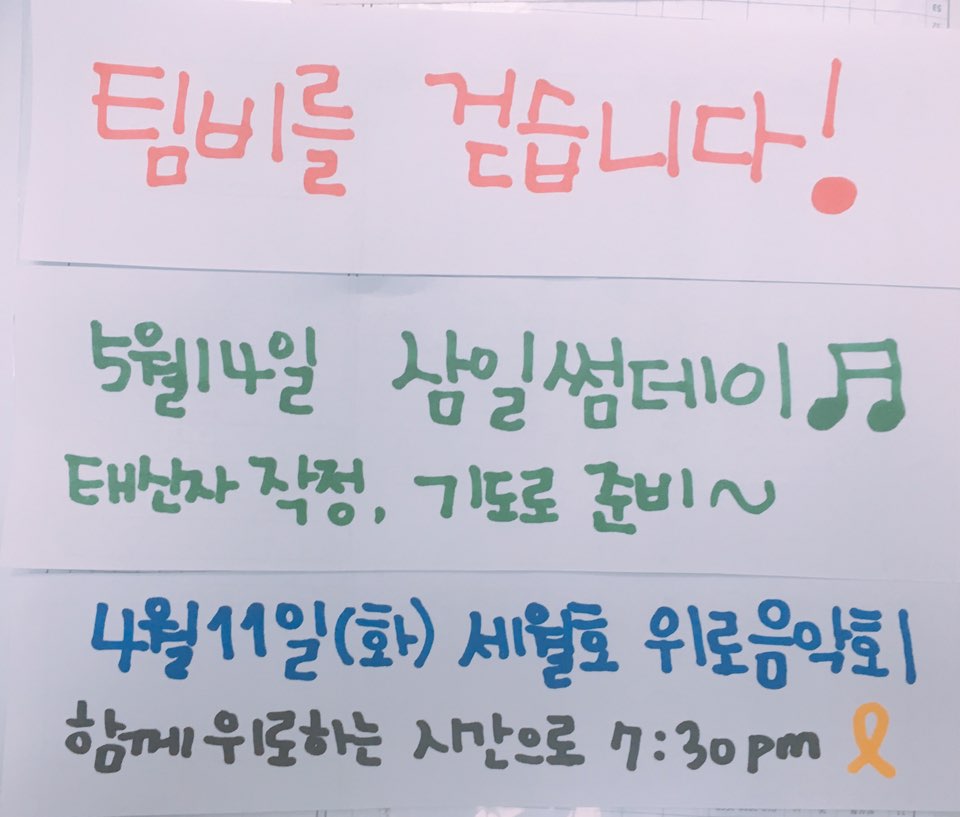 팀비를 걷습니다!
5월14일 삼일썸데이
태산자 작정, 기도로 준비~
4월11일(화) 세월호 위로음악회
함께 위로하는 시간으로 7:30pm